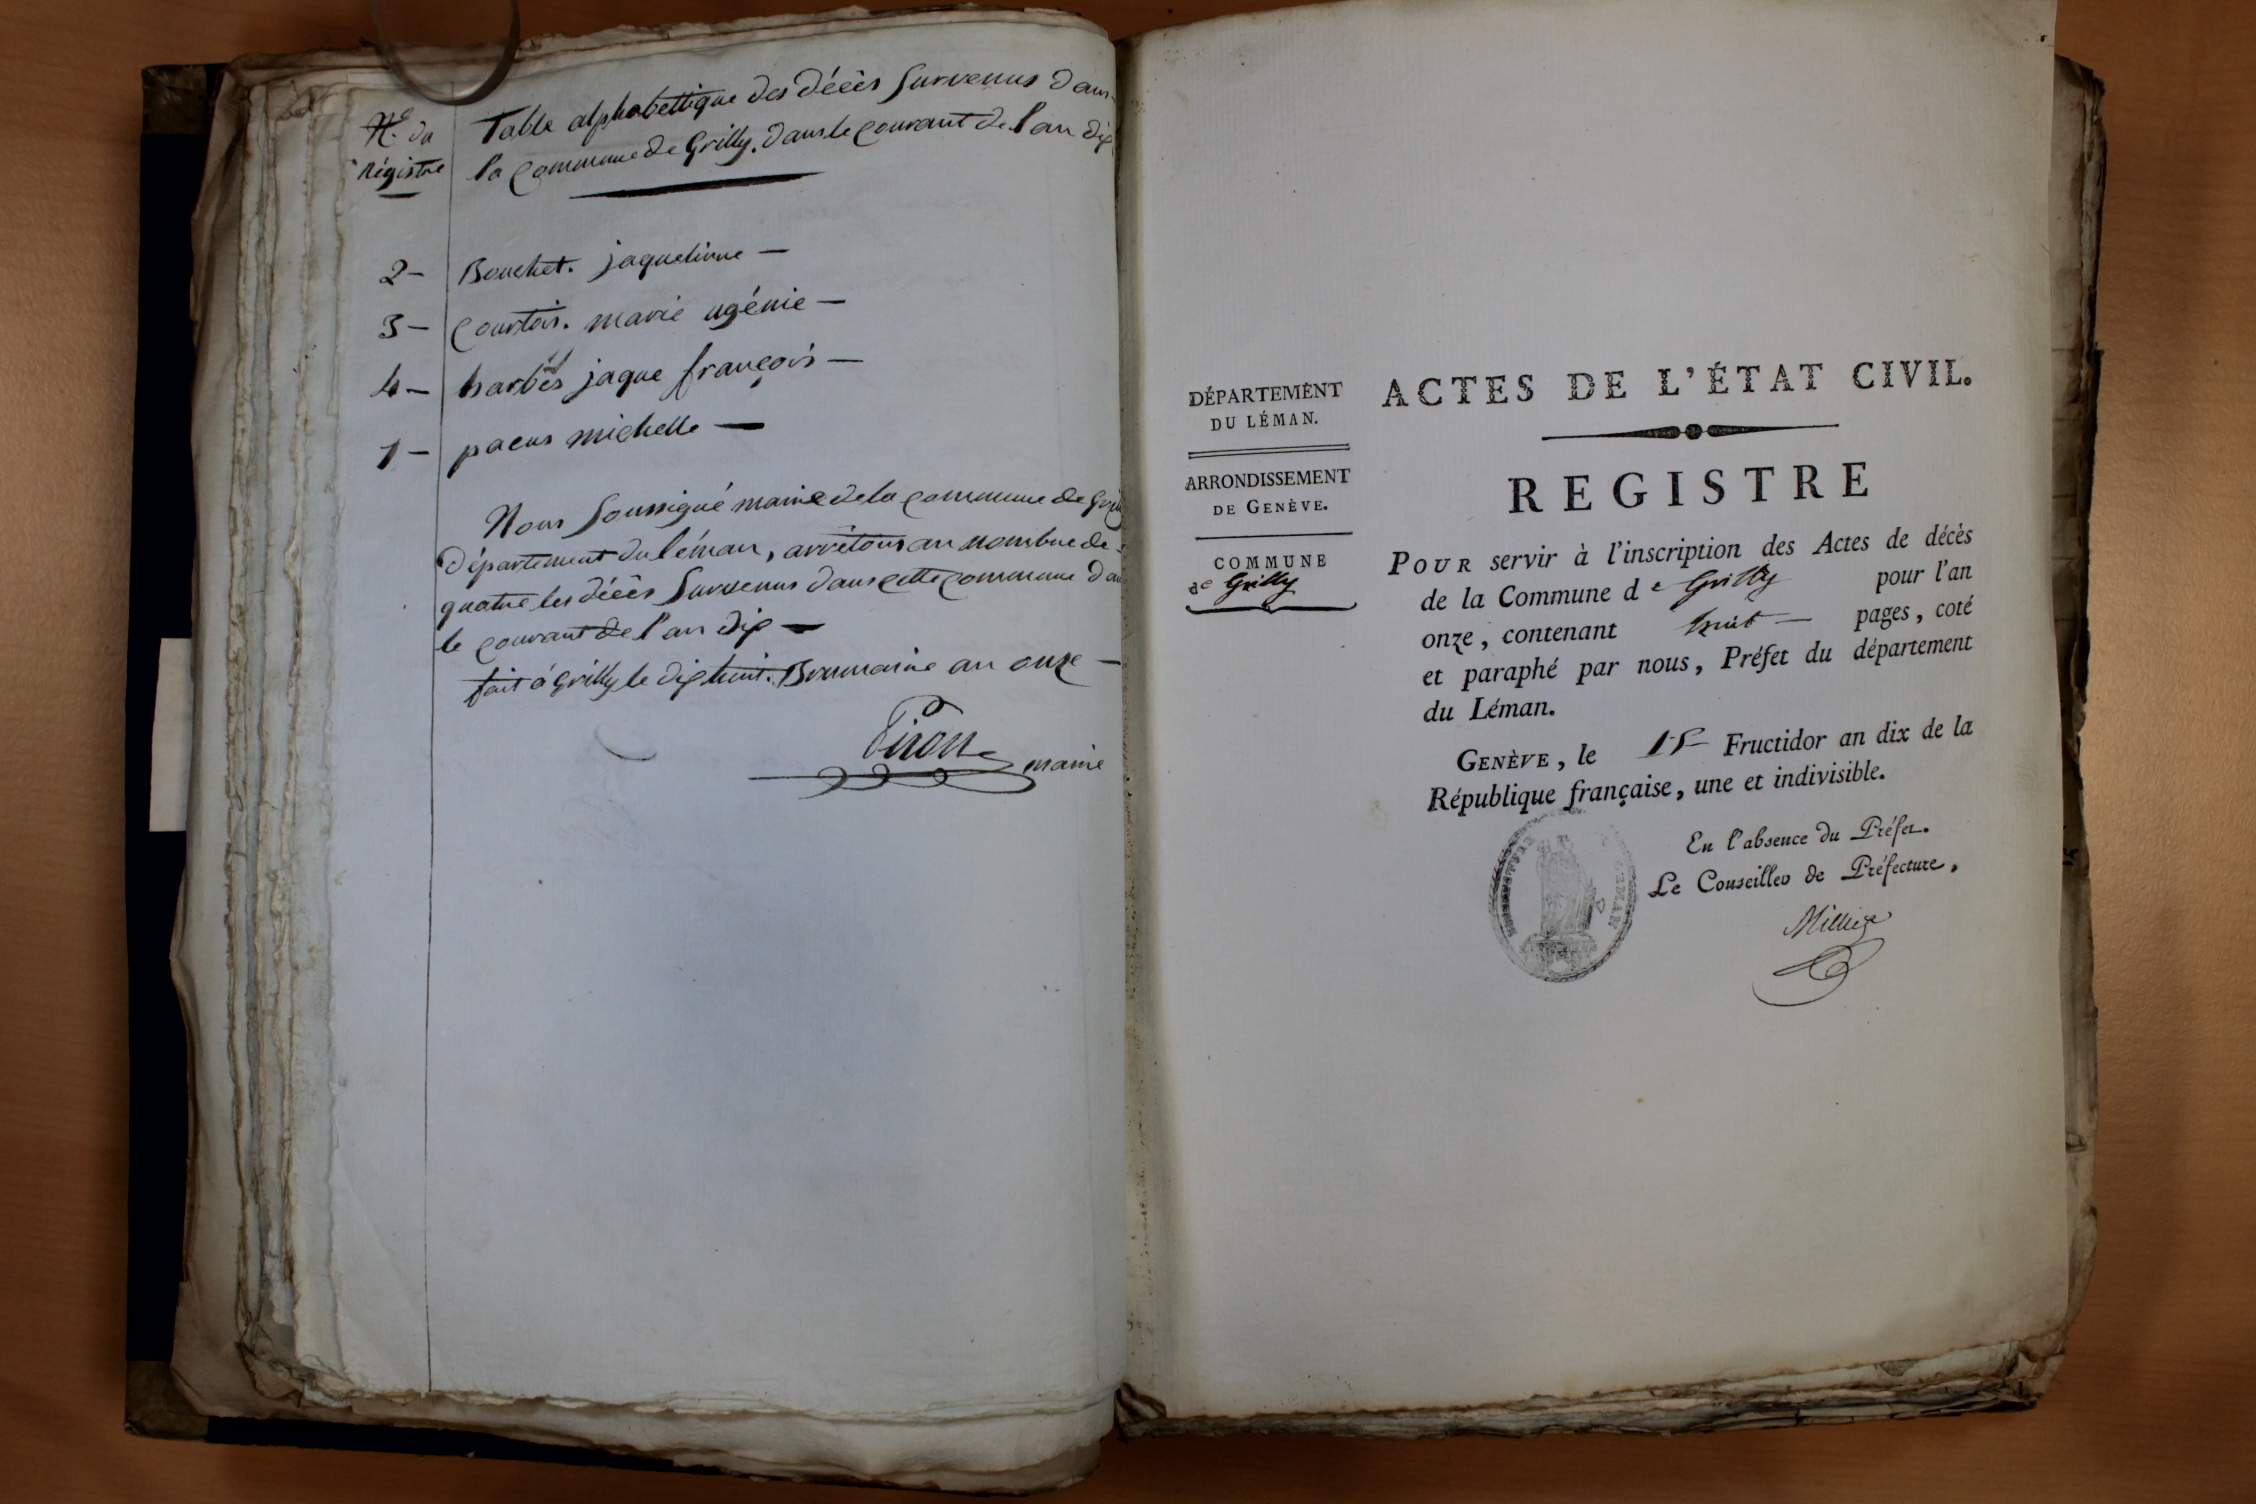 N.e du
Régistre
Table alphabettique des décès Survenus dans
la Commune de Grilly. dans le Courant de l'an dix
2 — Bouchet. jaquelinne —
3 — Courtois. marie ugénie —
4 — barbes jaque françois —
1 — pacus michelle —
Nous Soussigné maire de la Commune de Grilly
Département du léman, arrêtons au nombre de
quatre les décès Survenus dans cette Commune dans
le Courant de l'an dix —
fait à Grilly le dix huit. Brumaire an onze —
maire
DÉPARTEMENT
DU LÉMAN.
ARRONDISSEMENT
DE GENÈVE.
COMMUNE
de Grilly
ACTES DE L'ÉTAT CIVIL.
REGISTRE
POUR servir à l'inscription des Actes de décès
de la Commune de Grilly pour l'an
onze, contenant huit — pages, coté
et paraphé par nous, Préfet du département
du Léman.
GENÈVE, le 15 Fructidor an dix de la
République française, une et indivisible.
En l'absence du Préfet.
Le Conseiller de Préfecture,